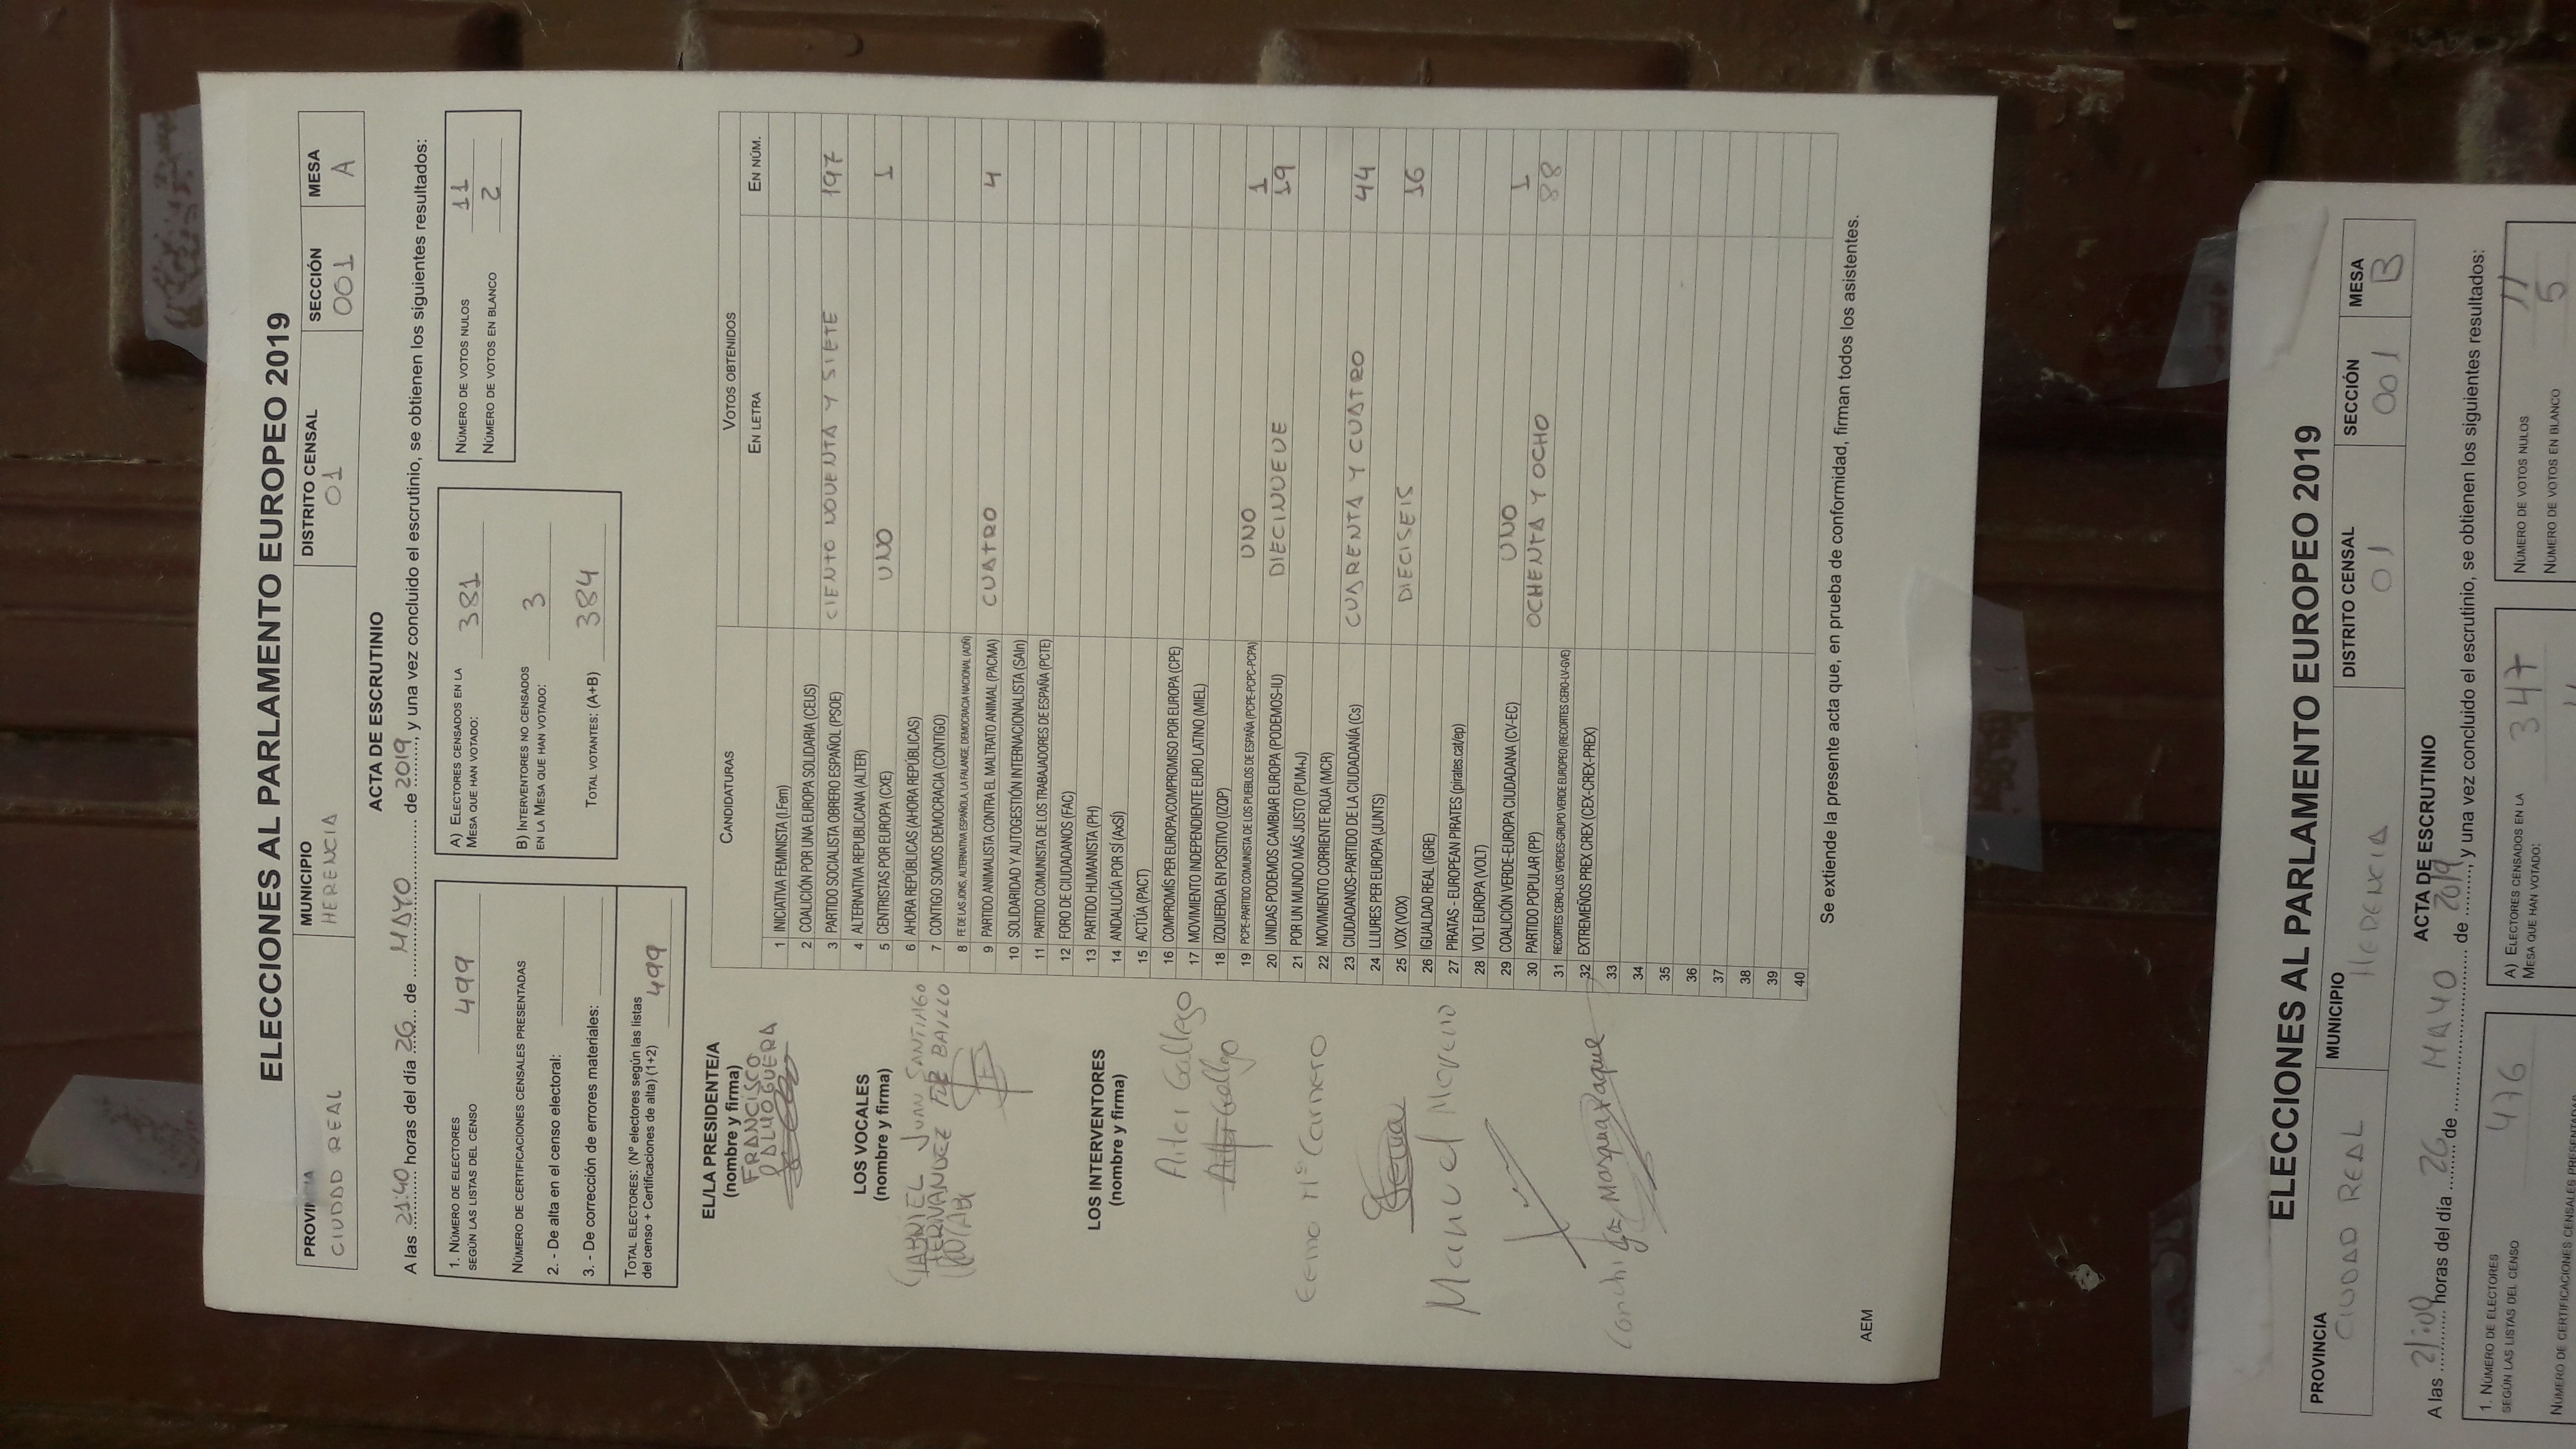 ELECCIONES AL PARLAMENTO EUROPEO 2019
PROVINCIA MUNICIPIO DISTRITO CENSAL SECCIÓN MESA
CIUDAD REAL HERENCIA 01 001 A
ACTA DE ESCRUTINIO
A las 21:40 horas del día 26 de MAYO de 2019, y una vez concluido el escrutinio, se obtienen los siguientes resultados:
1. NÚMERO DE ELECTORES
SEGÚN LAS LISTAS DEL CENSO 499
NÚMERO DE CERTIFICACIONES CENSALES PRESENTADAS
2. - De alta en el censo electoral:
3. - De corrección de errores materiales:
TOTAL ELECTORES: (Nº electores según las listas
del censo + Certificaciones de alta) (1+2) 499
A) ELECTORES CENSADOS EN LA
MESA QUE HAN VOTADO: 381
B) INTERVENTORES NO CENSADOS
EN LA MESA QUE HAN VOTADO: 3
TOTAL VOTANTES: (A+B) 384
NÚMERO DE VOTOS NULOS 11
NÚMERO DE VOTOS EN BLANCO 2
EL/LA PRESIDENTE/A
(nombre y firma)
FRANCISCO
LOS VOCALES
(nombre y firma)
GABRIEL JUAN SANTIAGO
FERNANDEZ BAILLO
LOS INTERVENTORES
(nombre y firma)
Aitor Gallego
Gallego
Gema Mª Carnero
Gema
Manuel Moreno
Conchi
CANDIDATURAS VOTOS OBTENIDOS
EN LETRA EN NÚM.
1 INICIATIVA FEMINISTA (I.Fem)
2 COALICIÓN POR UNA EUROPA SOLIDARIA (CEUS)
3 PARTIDO SOCIALISTA OBRERO ESPAÑOL (PSOE) CIENTO NOVENTA Y SIETE 197
4 ALTERNATIVA REPUBLICANA (ALTER)
5 CENTRISTAS POR EUROPA (CXE) UNO 1
6 AHORA REPÚBLICAS (AHORA REPÚBLICAS)
7 CONTIGO SOMOS DEMOCRACIA (CONTIGO)
8 FE DE LAS JONS, ALTERNATIVA ESPAÑOLA, LA FALANGE, DEMOCRACIA NACIONAL (ADÑ)
9 PARTIDO ANIMALISTA CONTRA EL MALTRATO ANIMAL (PACMA) CUATRO 4
10 SOLIDARIDAD Y AUTOGESTIÓN INTERNACIONALISTA (SAIn)
11 PARTIDO COMUNISTA DE LOS TRABAJADORES DE ESPAÑA (PCTE)
12 FORO DE CIUDADANOS (FAC)
13 PARTIDO HUMANISTA (PH)
14 ANDALUCÍA POR SÍ (AxSÍ)
15 ACTÚA (PACT)
16 COMPROMÍS PER EUROPA/COMPROMISO POR EUROPA (CPE)
17 MOVIMIENTO INDEPENDIENTE EURO LATINO (MIEL)
18 IZQUIERDA EN POSITIVO (IZQP)
19 PCPE-PARTIDO COMUNISTA DE LOS PUEBLOS DE ESPAÑA (PCPE-PCPC-PCPA) UNO 1
20 UNIDAS PODEMOS CAMBIAR EUROPA (PODEMOS-IU) DIECINUEVE 19
21 POR UN MUNDO MÁS JUSTO (PUM+J)
22 MOVIMIENTO CORRIENTE ROJA (MCR)
23 CIUDADANOS-PARTIDO DE LA CIUDADANÍA (Cs) CUARENTA Y CUATRO 44
24 LLIURES PER EUROPA (JUNTS)
25 VOX (VOX) DIECISEIS 16
26 IGUALDAD REAL (IGRE)
27 PIRATAS - EUROPEAN PIRATES (pirates.cat/ep)
28 VOLT EUROPA (VOLT)
29 COALICIÓN VERDE-EUROPA CIUDADANA (CV-EC) UNO 1
30 PARTIDO POPULAR (PP) OCHENTA Y OCHO 88
31 RECORTES CERO-LOS VERDES-GRUPO VERDE EUROPEO (RECORTES CERO-LV-GVE)
32 EXTREMEÑOS PREX CREX (CEX-CREX-PREX)
33
34
35
36
37
38
39
40
Se extiende la presente acta que, en prueba de conformidad, firman todos los asistentes.
AEM
ELECCIONES AL PARLAMENTO EUROPEO 2019
PROVINCIA MUNICIPIO DISTRITO CENSAL SECCIÓN MESA
CIUDAD REAL HERENCIA 01 001 B
ACTA DE ESCRUTINIO
A las 21:00 horas del día 26 de MAYO de 2019, y una vez concluido el escrutinio, se obtienen los siguientes resultados:
1. NÚMERO DE ELECTORES
SEGÚN LAS LISTAS DEL CENSO 476
NÚMERO DE CERTIFICACIONES CENSALES PRESENTADAS
A) ELECTORES CENSADOS EN LA
MESA QUE HAN VOTADO: 347
NÚMERO DE VOTOS NULOS 11
NÚMERO DE VOTOS EN BLANCO 5